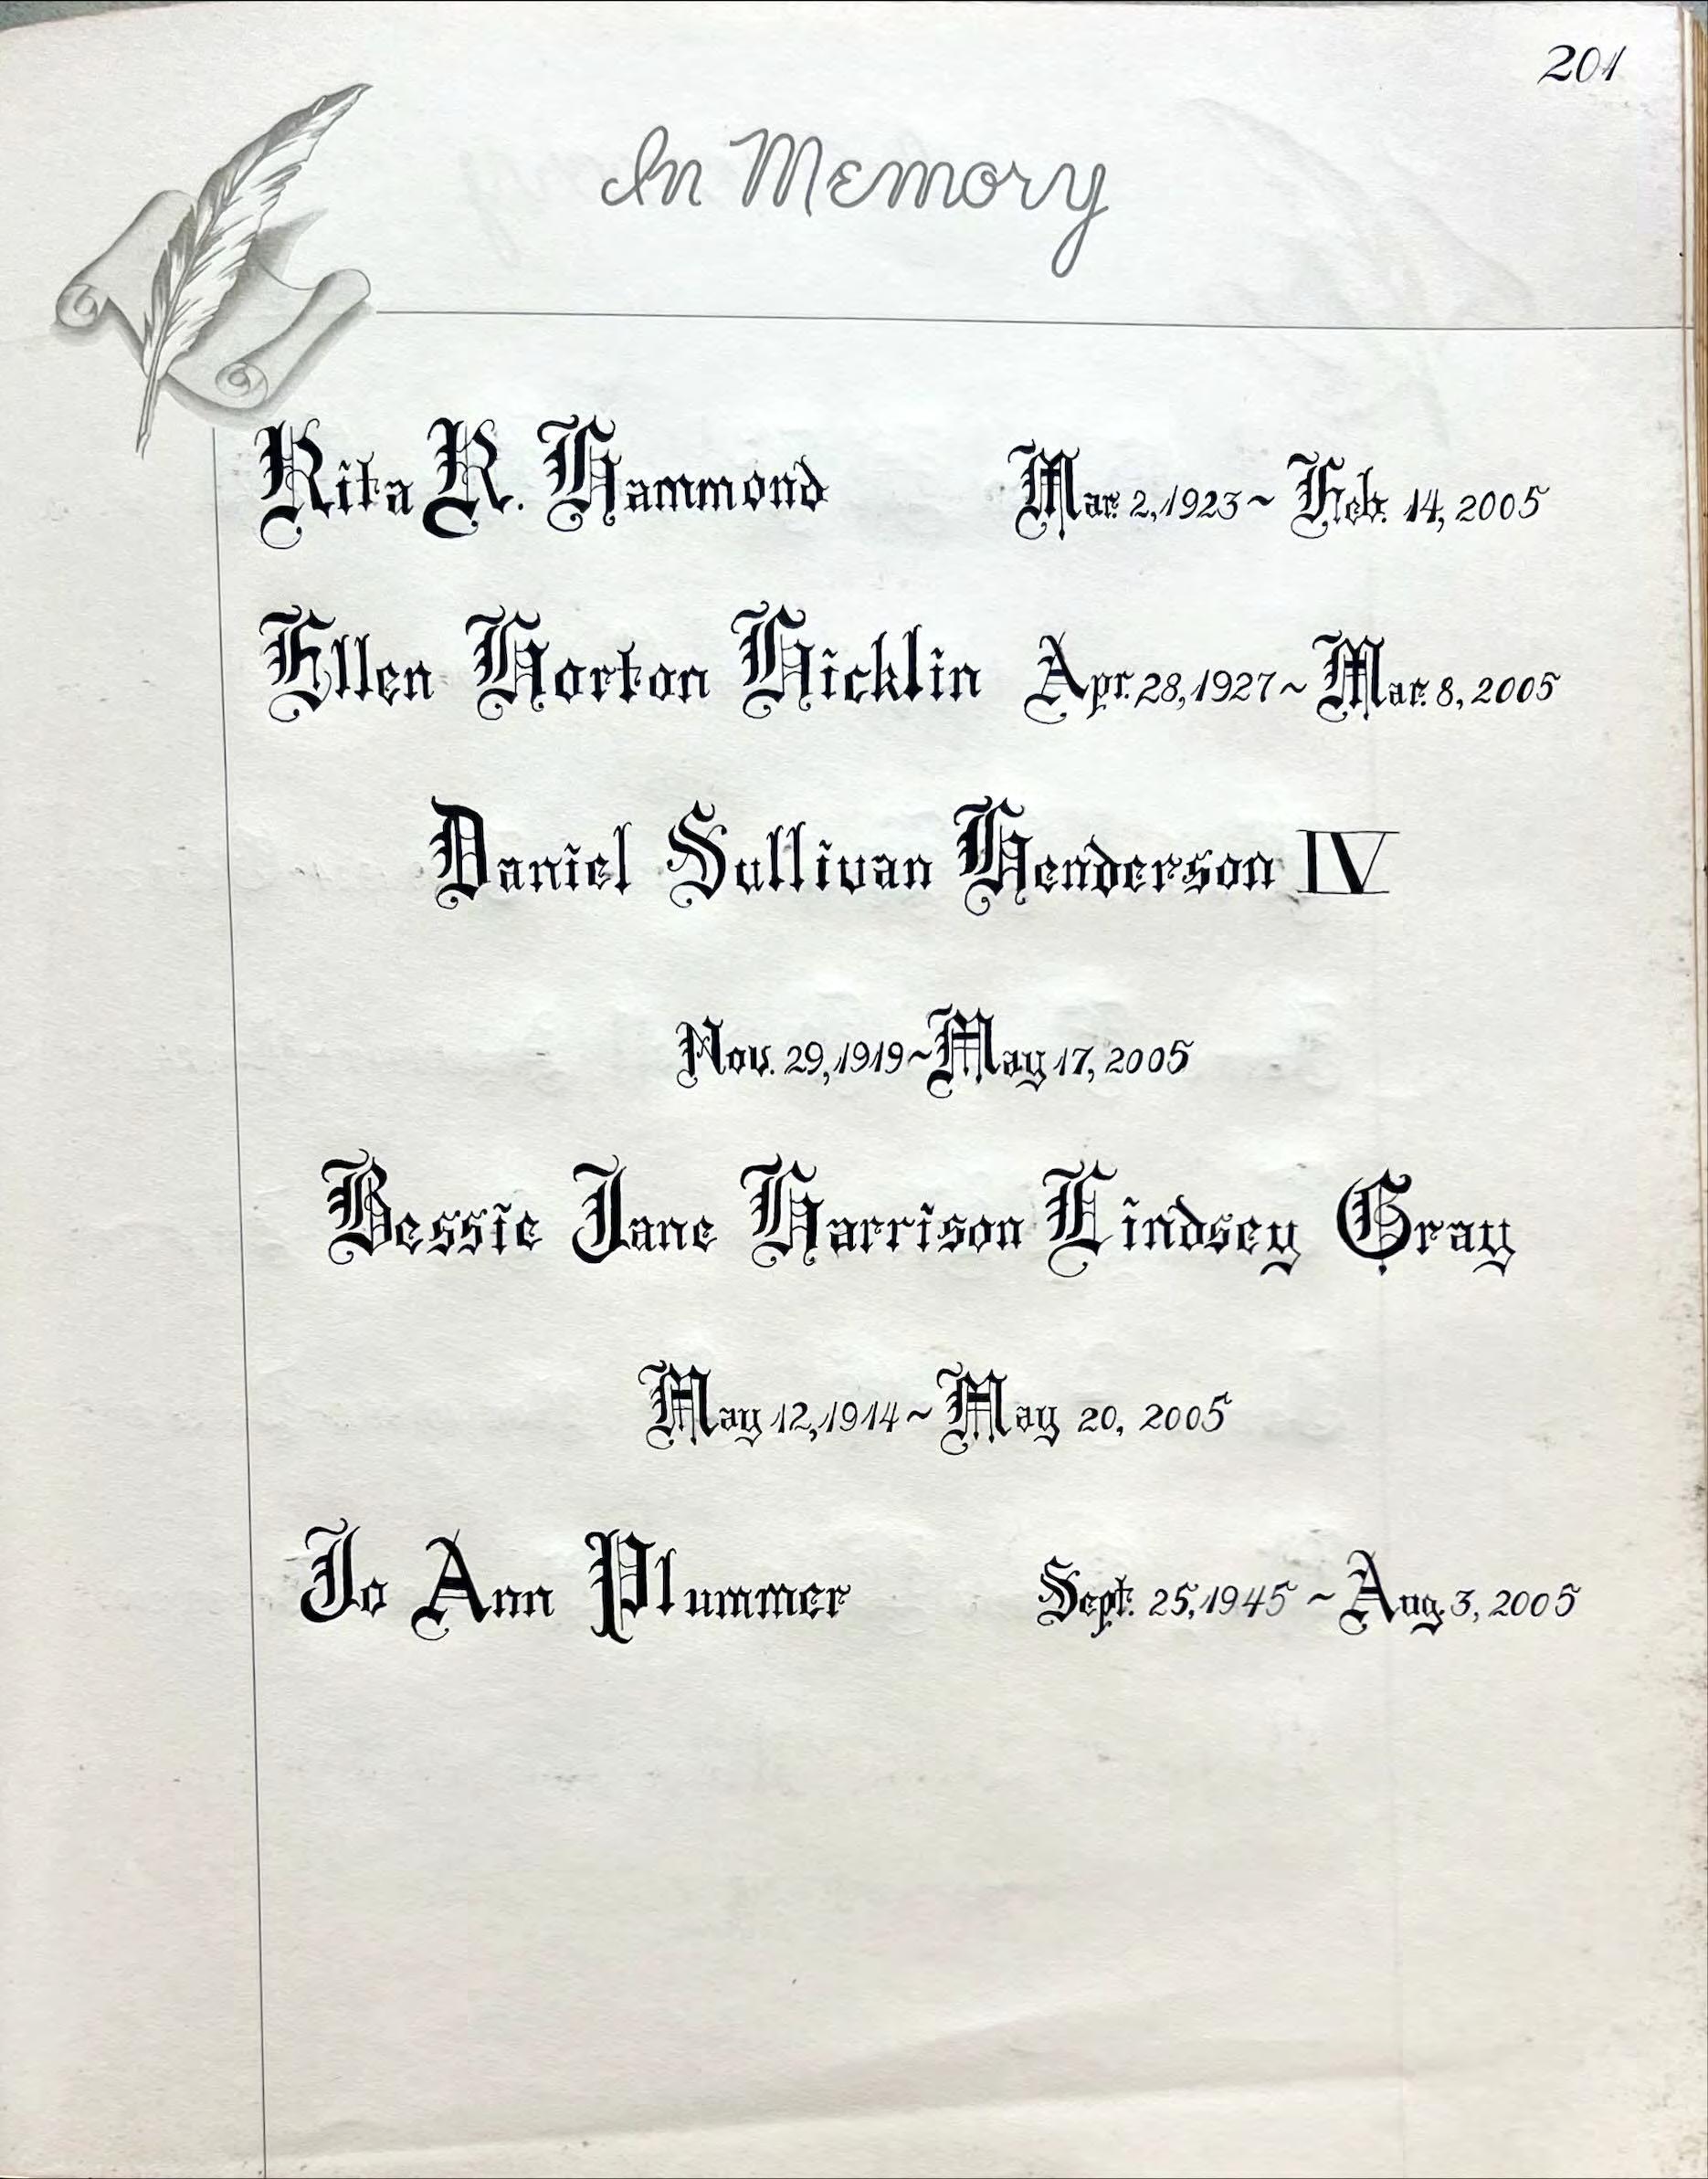 201
In Memory
Rita R. Hammond Mar. 2, 1923 ~ Feb. 14, 2005
Ellen Horton Hicklin Apr. 28, 1927 ~ Mar. 8, 2005
Daniel Sullivan Henderson IV
Nov. 29, 1919 ~ May 17, 2005
Bessie Jane Harrison Lindsey Gray
May 12, 1914 ~ May 20, 2005
Jo Ann Plummer Sept. 25, 1945 ~ Aug. 3, 2005